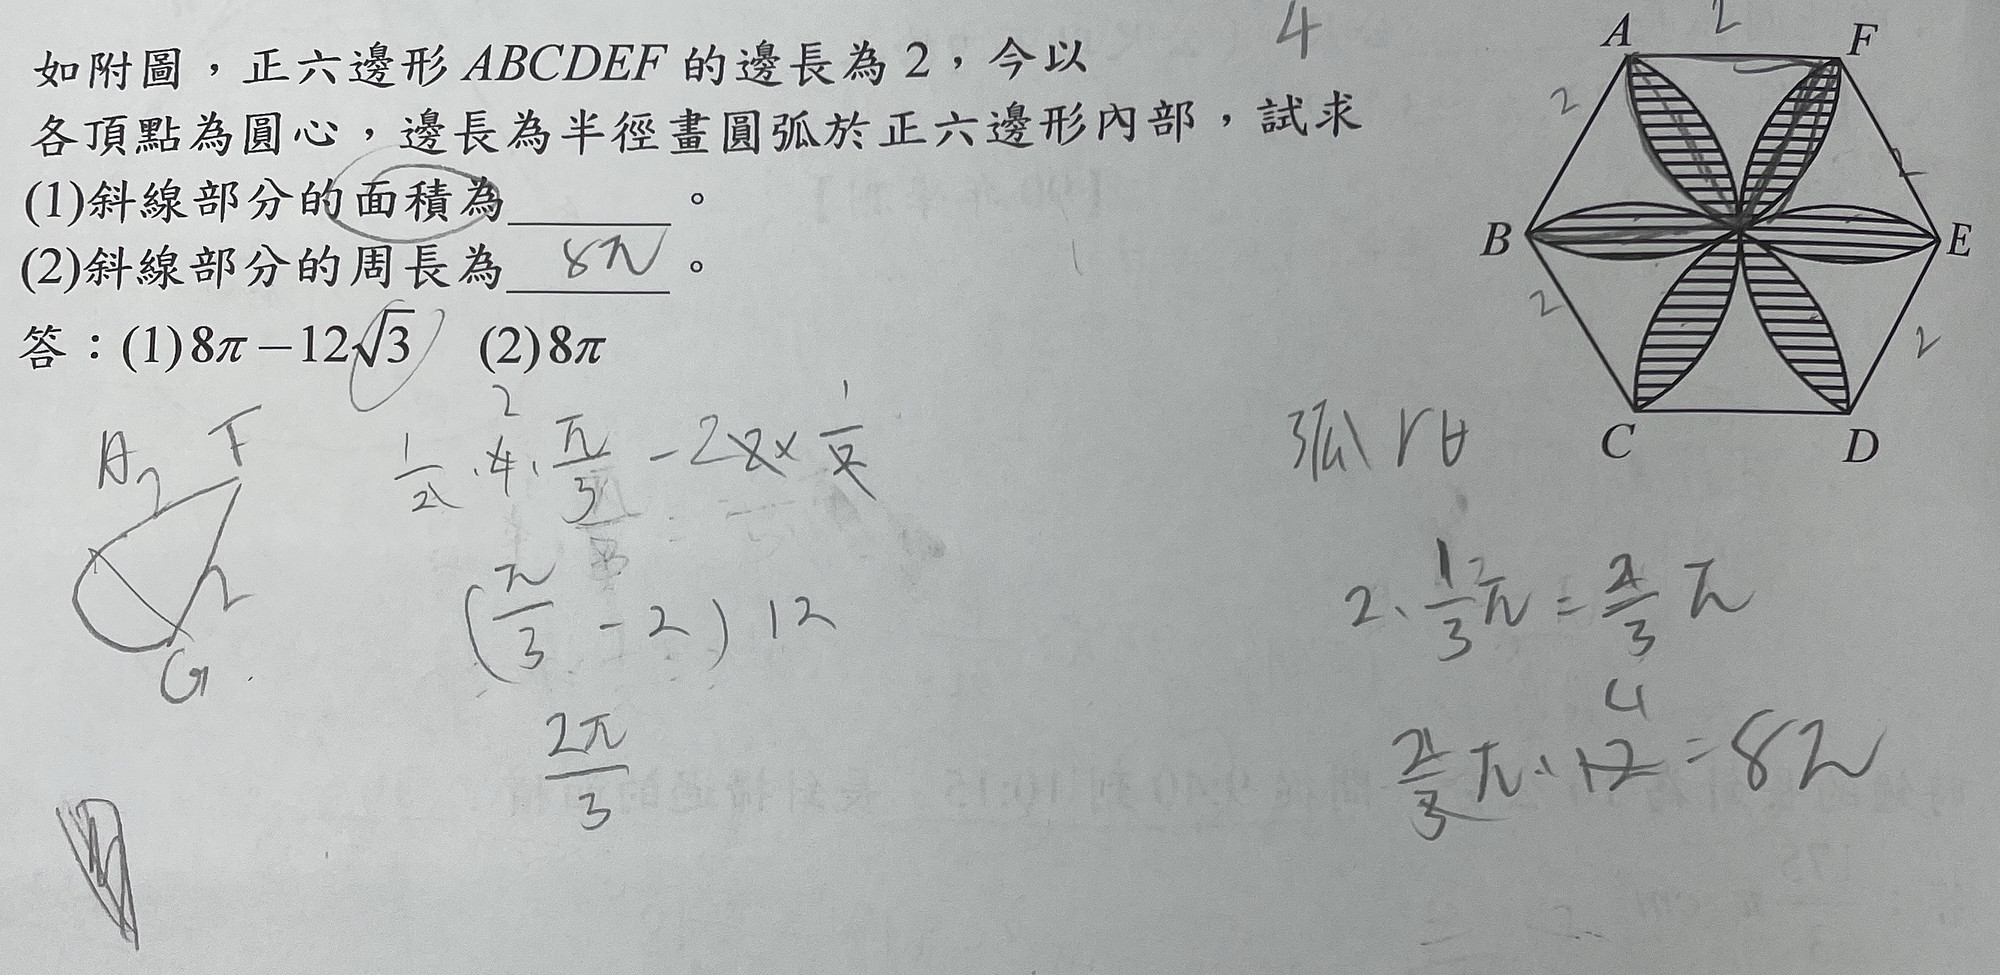 如附圖，正六邊形 ABCDEF 的邊長為 2，今以
各頂點為圓心，邊長為半徑畫圓弧於正六邊形內部，試求
(1)斜線部分的面積為______。
(2)斜線部分的周長為 8π 。
答：(1) 8π − 12√3　(2) 8π
4
A 2 F
2 2
B E
2 2
C D
A 2 F
2
G
1/2 · 4 · π/3 − 2
2
(π/3 − 2) 12
2π/3
弧 rθ
2 · 1/3 π = 2/3 π
2/3 π · 12 = 8π
4